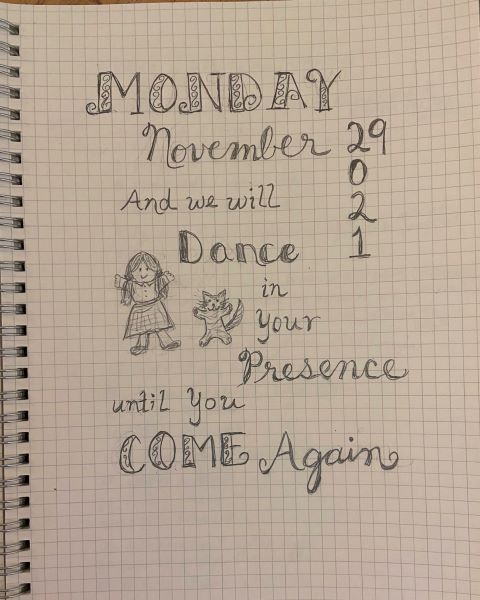 MONDAY
November 29
0
And we will
2
Dance
1
in
Your
Presence
until You
COME Again